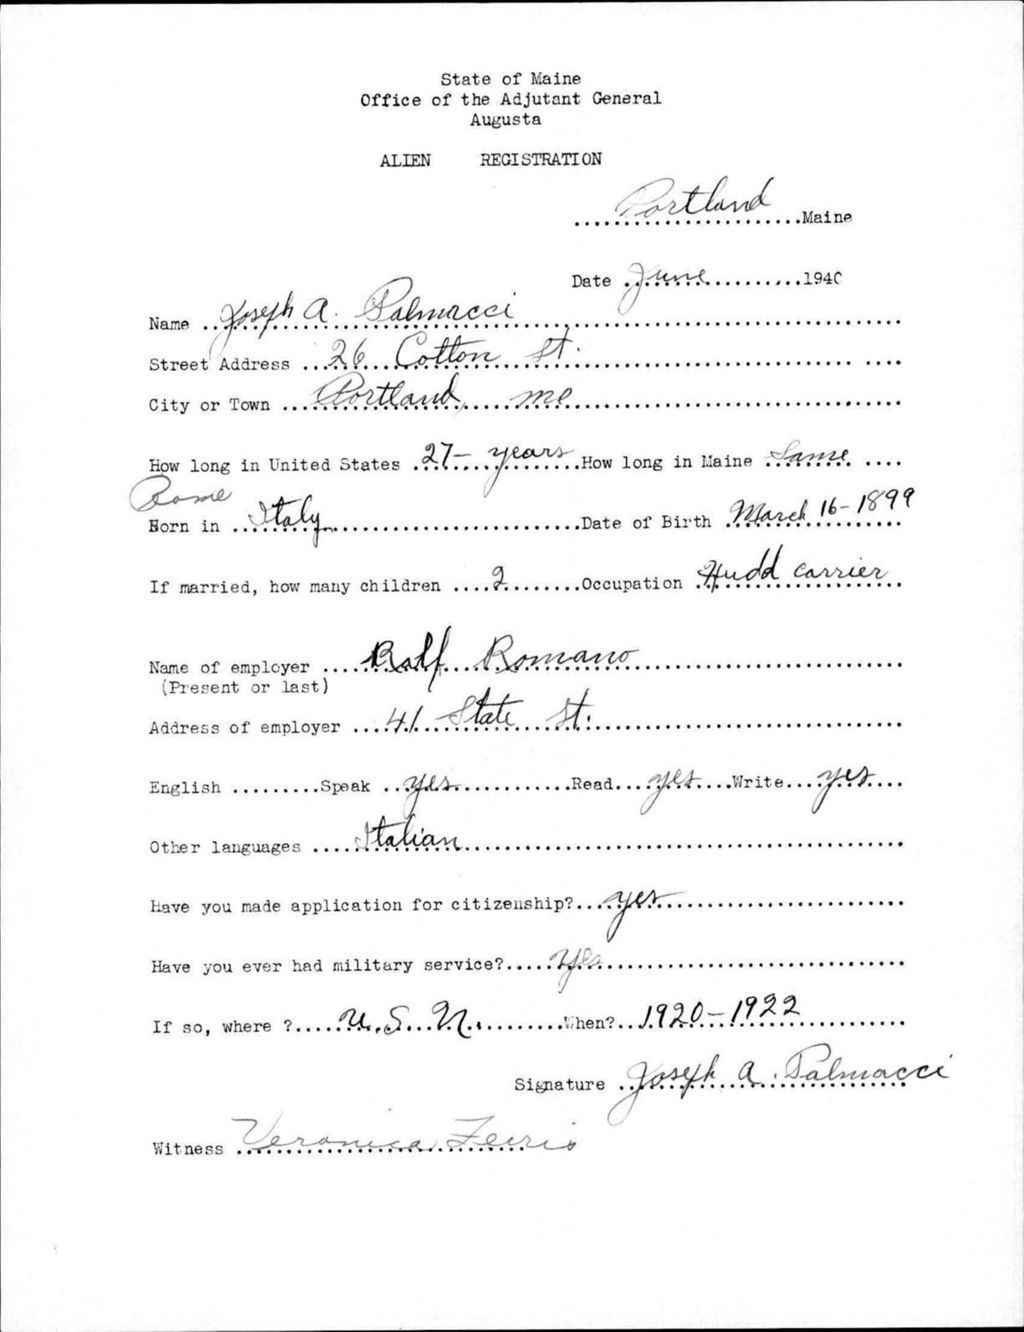 State of Maine
Office of the Adjutant General
Augusta
ALIEN REGISTRATION
Portland Maine
Date June 1940
Name Joseph A. Palmacci
Street Address 26 Cotton St.
City or Town Portland, me
How long in United States 27- years How long in Maine Same
Rome
Born in Italy Date of Birth March 16-1899
If married, how many children 2 Occupation Hudd carrier
Name of employer Ralf Romano
(Present or last)
Address of employer 41 State St.
English Speak yes Read yes Write yes
Other languages Italian
Have you made application for citizenship? yes
Have you ever had military service? Yes
If so, where ? U.S.N. When? 1920-1922
Signature Joseph A. Palmacci
Witness Veronica Ferris